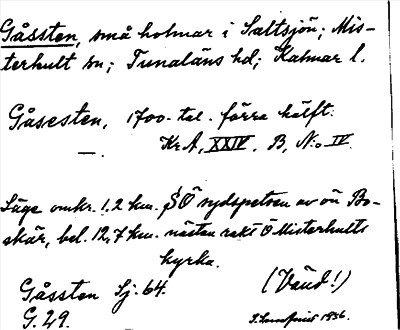 Gåssten, små holmar i Saltsjön; Mis-
terhult sn; Tunaläns hd; Kalmar l.
Gåsesten, 1700-tal. förra hälft.
— . Kr A, XXIV, B, N:o IV.
Läge omkr. 1,2 km. SÖ sydspetsen av ön Bo-
skär, bel. 12,7 km. nästan rakt Ö Misterhults
kyrka.
Gåssten Sj. 64. (Vänd!)
G. 29. 1936.